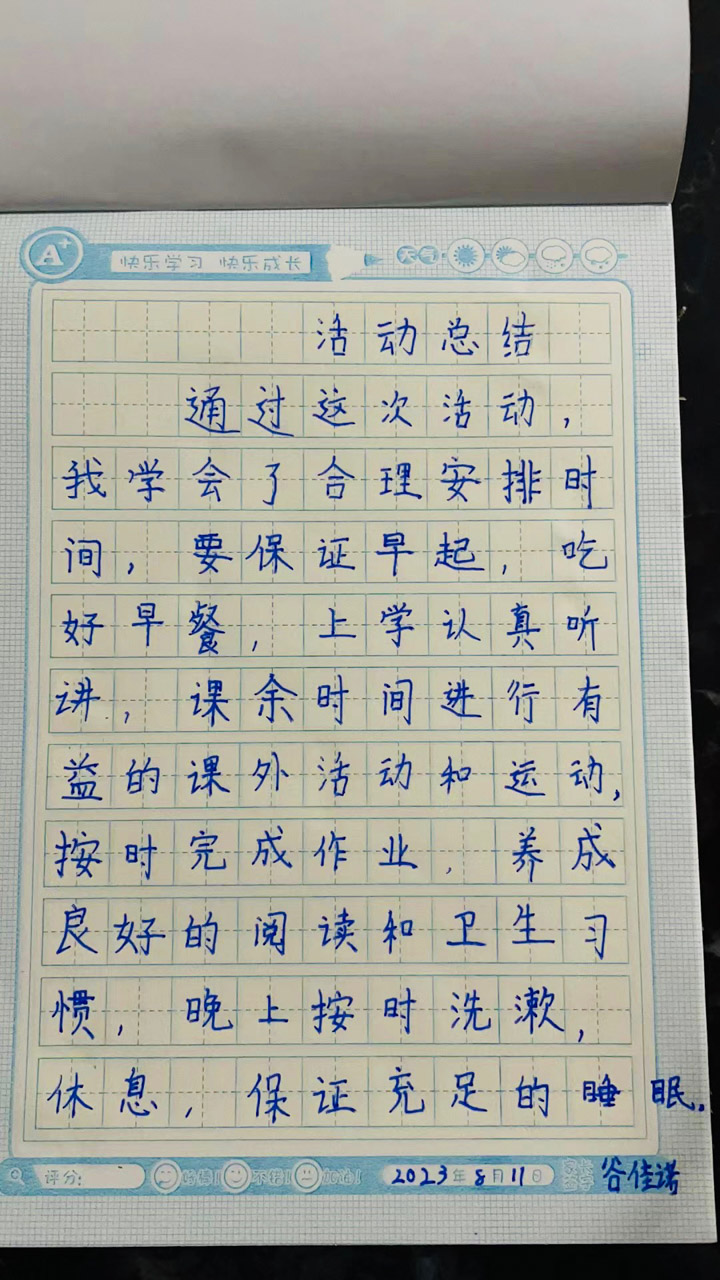 A+ 快乐学习 快乐成长 天气
活动总结
通过这次活动，
我学会了合理安排时
间，要保证早起，吃
好早餐，上学认真听
讲，课余时间进行有
益的课外活动和运动，
按时完成作业，养成
良好的阅读和卫生习
惯，晚上按时洗漱，
休息，保证充足的睡眠。
评分： 不错！ 加油！ 2023年8月11日 谷佳诺